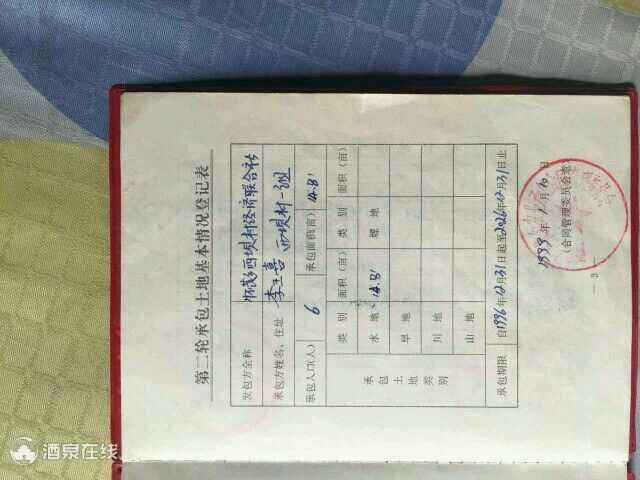 第二轮承包土地基本情况登记表
发包方全称 西坝村经济联合社
承包方姓名、住址 李玉喜 西坝村一组
承包人口(人) 6 承包面积(亩) 14.81
承包土地类别 类别 面积(亩) 类别 面积(亩)
水地 14.81 稞地
旱地
川地
山地
承包期限 自1996年12月31日起至2026年12月31日止
1999年1月10日
(合同管理委员会章)
— 3 —
酒泉在线